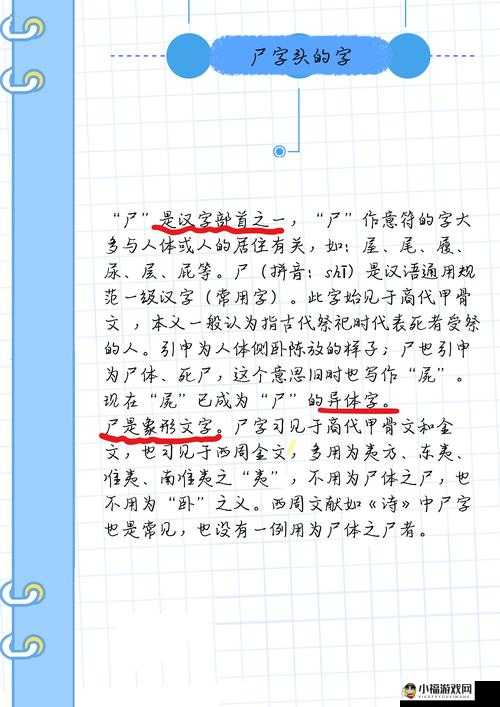 尸字头的字
“尸”是汉字部首之一，“尸”作意符的字大
多与人体或人的居住有关，如：屋、尾、履、
尿、层、屁等。尸（拼音：shī）是汉语通用规
范一级汉字（常用字）。此字始见于商代甲骨
文 ，本义一般认为指古代祭祀时代表死者受祭
的人。引申为人体侧卧陈放的样子；尸也引申
为尸体、死尸，这个意思旧时也写作“屍”。
现在“屍”已成为“尸”的异体字。
尸是象形文字。尸字习见于商代甲骨文和金
文，也习见于西周金文，多用为夷方、东夷、
淮夷、南淮夷之“夷”，不用为尸体之尸，也
不用为“卧”之义。西周文献如《诗》中尸字
也是常见，也没有一例用为尸体之尸者。
小福游戏网